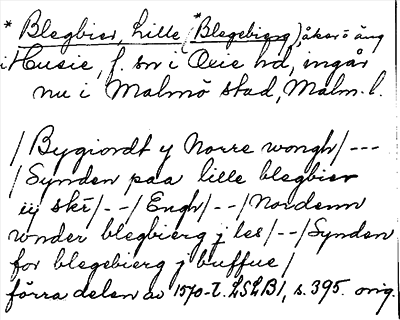 * Blegbier, Lille (*Blegebierg), åker o äng
i Husie, f. sn i Oxie hd, ingår
nu i Malmö stad, Malm. l.
/Bygiordt y Norre wongh/---
/Synden paa lille blegbier
iij skr/--/Engh/--/Nordenn
wnder blegbierg j les/--/Synden
for blegebierg j buffue/
förra delen av 1570-t. LSLB1, s. 395. orig.